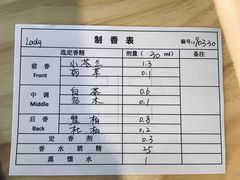 制香表
Lady 编号:190330
选定香精 剂量(30 ml) 备注
前香 小苍兰 1.3
Front 0.1
中调 白茶 0.6
Middle 乌木 0.1
后香 雪松 0.8
Back 0.2
定香剂 0.3
香水酒精 25
蒸馏水 1